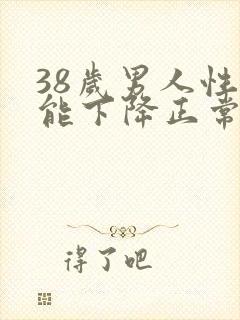 38歲男人性
能下降正常
得了吧